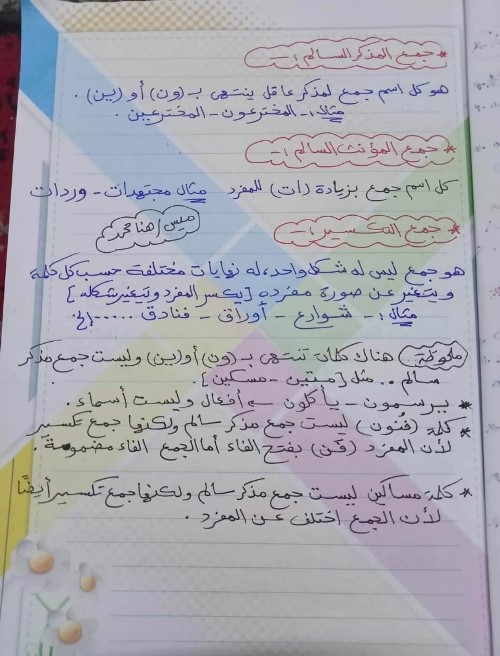 * جمع المذكر السالم :-
هو كل اسم جمع لمذكر عاقل ينتهى بـ (ون) أو (ين) .
مثال :- المخترعون - المخترعين .
* جمع المؤنث السالم :-
كل اسم جمع بزيادة (ات) للمفرد مثال مجتهدات - وردات
ميس / هنا محمد
* جمع التكسير :-
هو جمع ليس له شكل واحد، له نهايات مختلفة حسب كل كلمة
ويتغير عن صورة مفرده [يكسر المفرد ويتغير شكله]
مثال :- شوارع - أوراق - فنادق ..... إلخ
ملحوظة هناك كلمات تنتهى بـ (ون) أو (ين) وليست جمع مذكر
سالم .. مثل [متين - مسكين] .
* يرسمون - يأكلون ← أفعال وليست أسماء .
* كلمة (فُنون) ليست جمع مذكر سالم ولكنها جمع تكسير
لأن المفرد (فَن) بفتح الفاء أما الجمع الفاء مضمومة .
* كلمة مساكين ليست جمع مذكر سالم ولكنها جمع تكسير أيضًا
لأن الجمع اختلف عن المفرد .